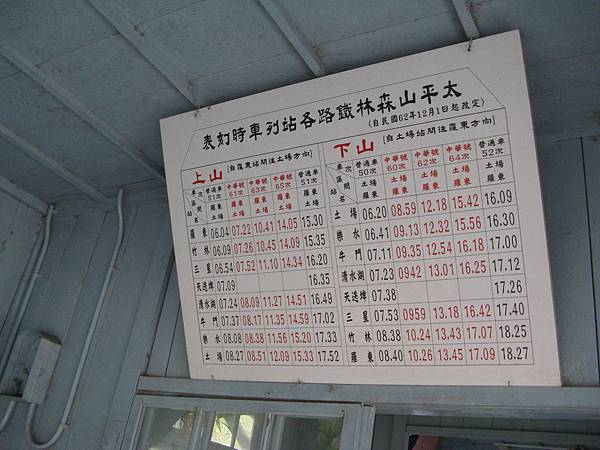 太平山森林鐵路各站列車時刻表
(自民國62年12月1日起改定)
上山 (自羅東站開往土場方向)
車次 普通車51次 中華號61次 中華號63次 中華號65次 普通車51次
區間 站名 羅東 土場 羅東 土場 羅東 土場 羅東 土場 羅東 土場
羅東 06.04 07.22 10.41 14.05 15.30
竹林 06.09 07.26 10.45 14.09 15.35
三星 06.54 07.52 11.10 14.34 16.20
天送埤 07.09 16.35
清水湖 07.24 08.09 11.27 14.51 16.49
牛門 07.37 08.17 11.35 14.59 17.02
樂水 08.08 08.38 11.56 15.20 17.33
土場 08.27 08.51 12.09 15.33 17.52
下山 (自土場站開往羅東方向)
車次 普通車50次 中華號60次 中華號62次 中華號64次 普通車52次
區間 站名 土場 羅東 土場 羅東 土場 羅東 土場 羅東 土場 羅東
土場 06.20 08.59 12.18 15.42 16.09
樂水 06.41 09.13 12.32 15.56 16.30
牛門 07.11 09.35 12.54 16.18 17.00
清水湖 07.23 0942 13.01 16.25 17.12
天送埤 07.38 17.26
三星 07.53 0959 13.18 16.42 17.40
竹林 08.38 10.24 13.43 17.07 18.25
羅東 08.40 10.26 13.45 17.09 18.27